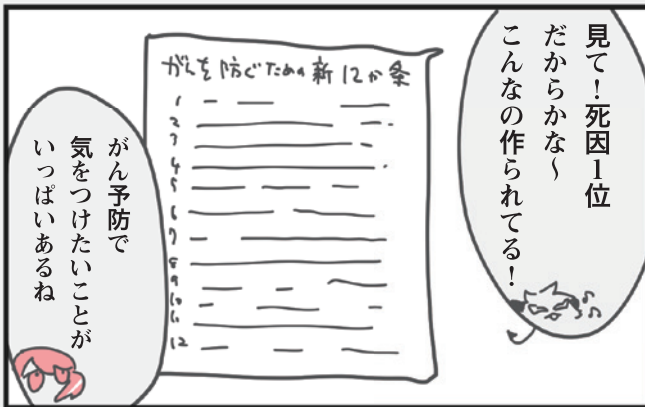 見て！死因1位
だからかな～
こんなの作られてる！
がんを防ぐための新12か条
1
2
3
4
5
6
7
8
9
10
11
12
がん予防で
気をつけたいことが
いっぱいあるね